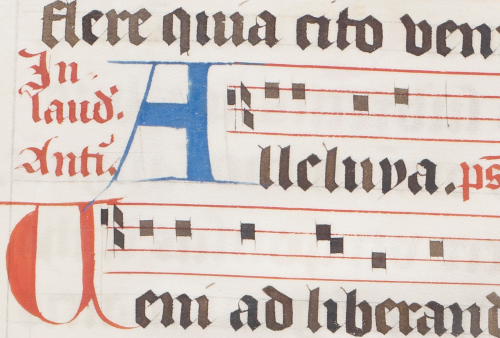 flere quia cito ven
In
laud.
Anti.
Alleluya. ps
Veni ad liberand